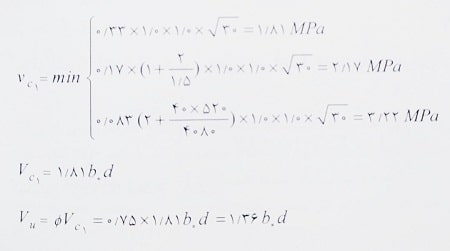 ۰/۳۳×۱/۰×۱/۰×√۳۰ = ۱/۸۱ MPa
v_c₁ = min { ۰/۱۷×(۱+۲/۱/۵)×۱/۰×۱/۰×√۳۰ = ۲/۱۷ MPa
۰/۰۸۳(۲+۴۰×۵۲۰/۴۰۸۰)×۱/۰×۱/۰×√۳۰ = ۳/۲۲ MPa
V_c₁ = ۱/۸۱b₀d
V_u = ϕV_c₁ = ۰/۷۵×۱/۸۱b₀d = ۱/۳۶b₀d